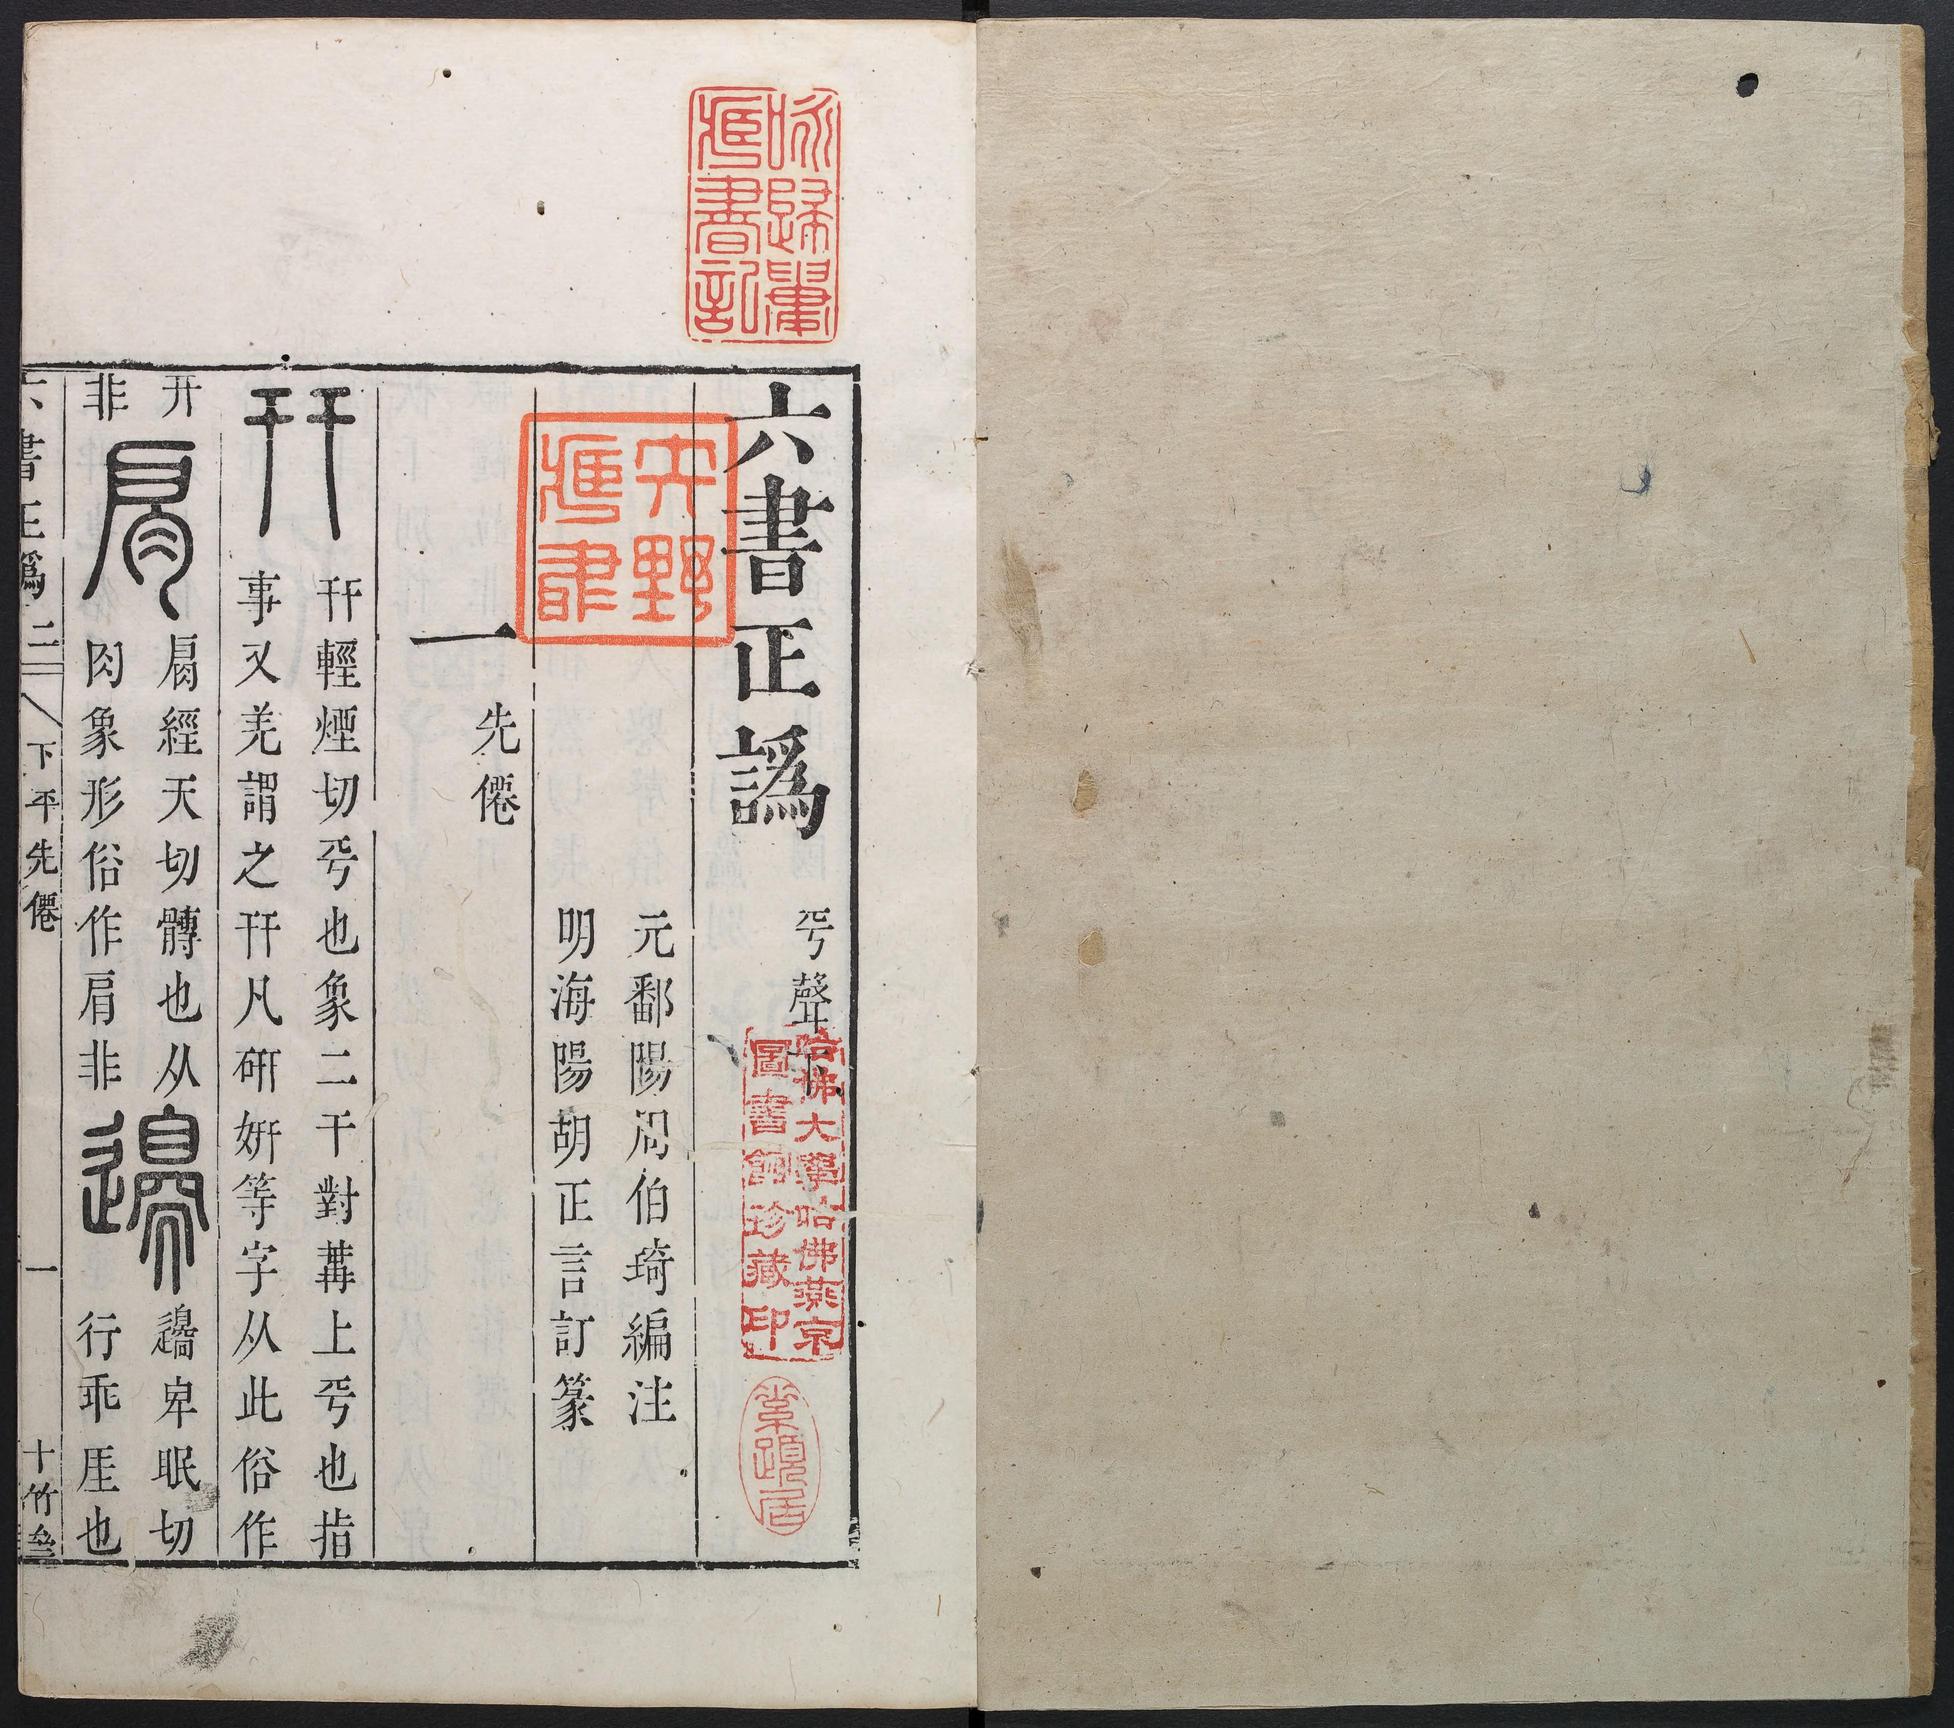 六書正譌 平聲下
元鄱陽周伯琦編注
明海陽胡正言訂篆
一 先僊
幵 幵輕煙切平也象二干對冓上平也指
事又羌謂之幵凡硏姸等字从此俗作
开
非
肩 肩經天切髆也从
肉象形俗作肩非
邊 邊卑眠切
行乖厓也
六書正譌 二 下平先僊 一 十竹
詠歸
藏書記
矢野
藏書
哈佛大學哈佛燕京
圖書館珍藏印